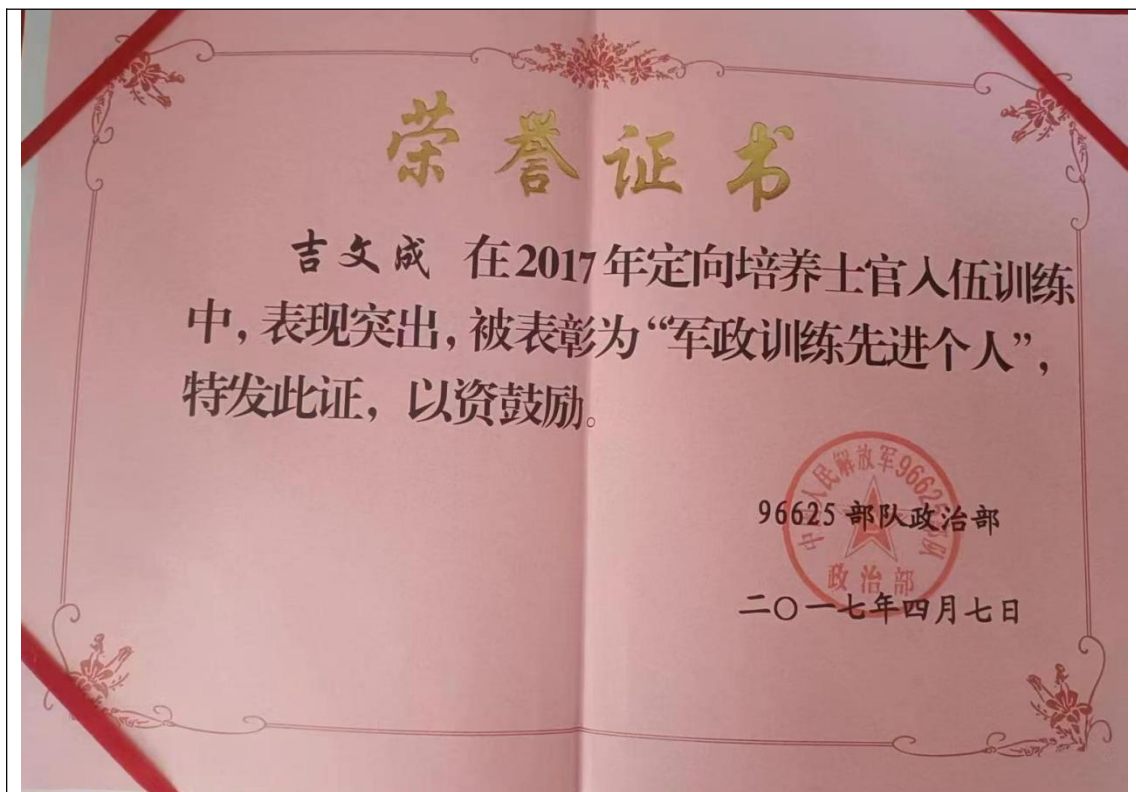 荣誉证书
吉文成 在2017年定向培养士官入伍训练
中，表现突出，被表彰为“军政训练先进个人”，
特发此证，以资鼓励。
中国人民解放军96625部队
96625部队政治部
政治部
二〇一七年四月七日